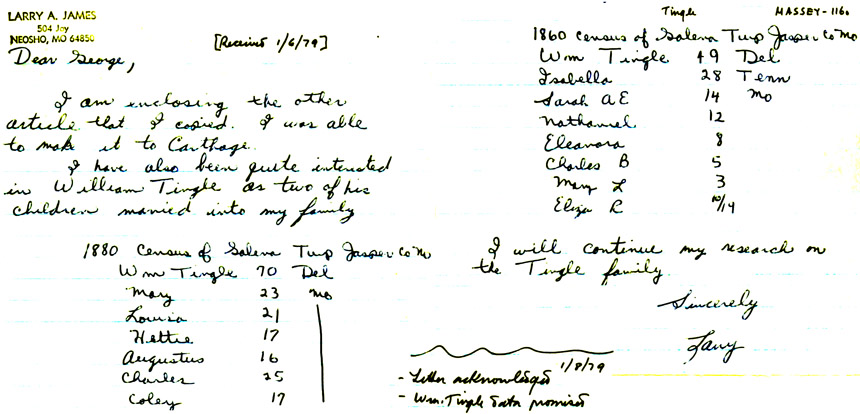 LARRY A. JAMES
504 Joy
NEOSHO, MO 64850
[Received 1/6/79]
Dear George,
I am enclosing the other
article that I copied. I was able
to make it to Carthage.
I have also been quite interested
in William Tingle as two of his
children married into my family
1880 Census of Galena Twp Jasper Co Mo
Wm Tingle 70 Del
Mary 23 Mo
Louisa 21
Hettie 17
Augustus 16
Charles 25
Coley 17
Tingle MASSEY-116a
1860 Census of Galena Twp Jasper Co Mo
Wm Tingle 49 Del
Isabella 28 Tenn
Sarah A E 14 Mo
Nathaniel 12
Eleanora 8
Charles B 5
Mary L 3
Eliza R
I will continue my research on
the Tingle family.
Sincerely
Larry
1/8/79
- Letter acknowledged
- Wm. Tingle data promised